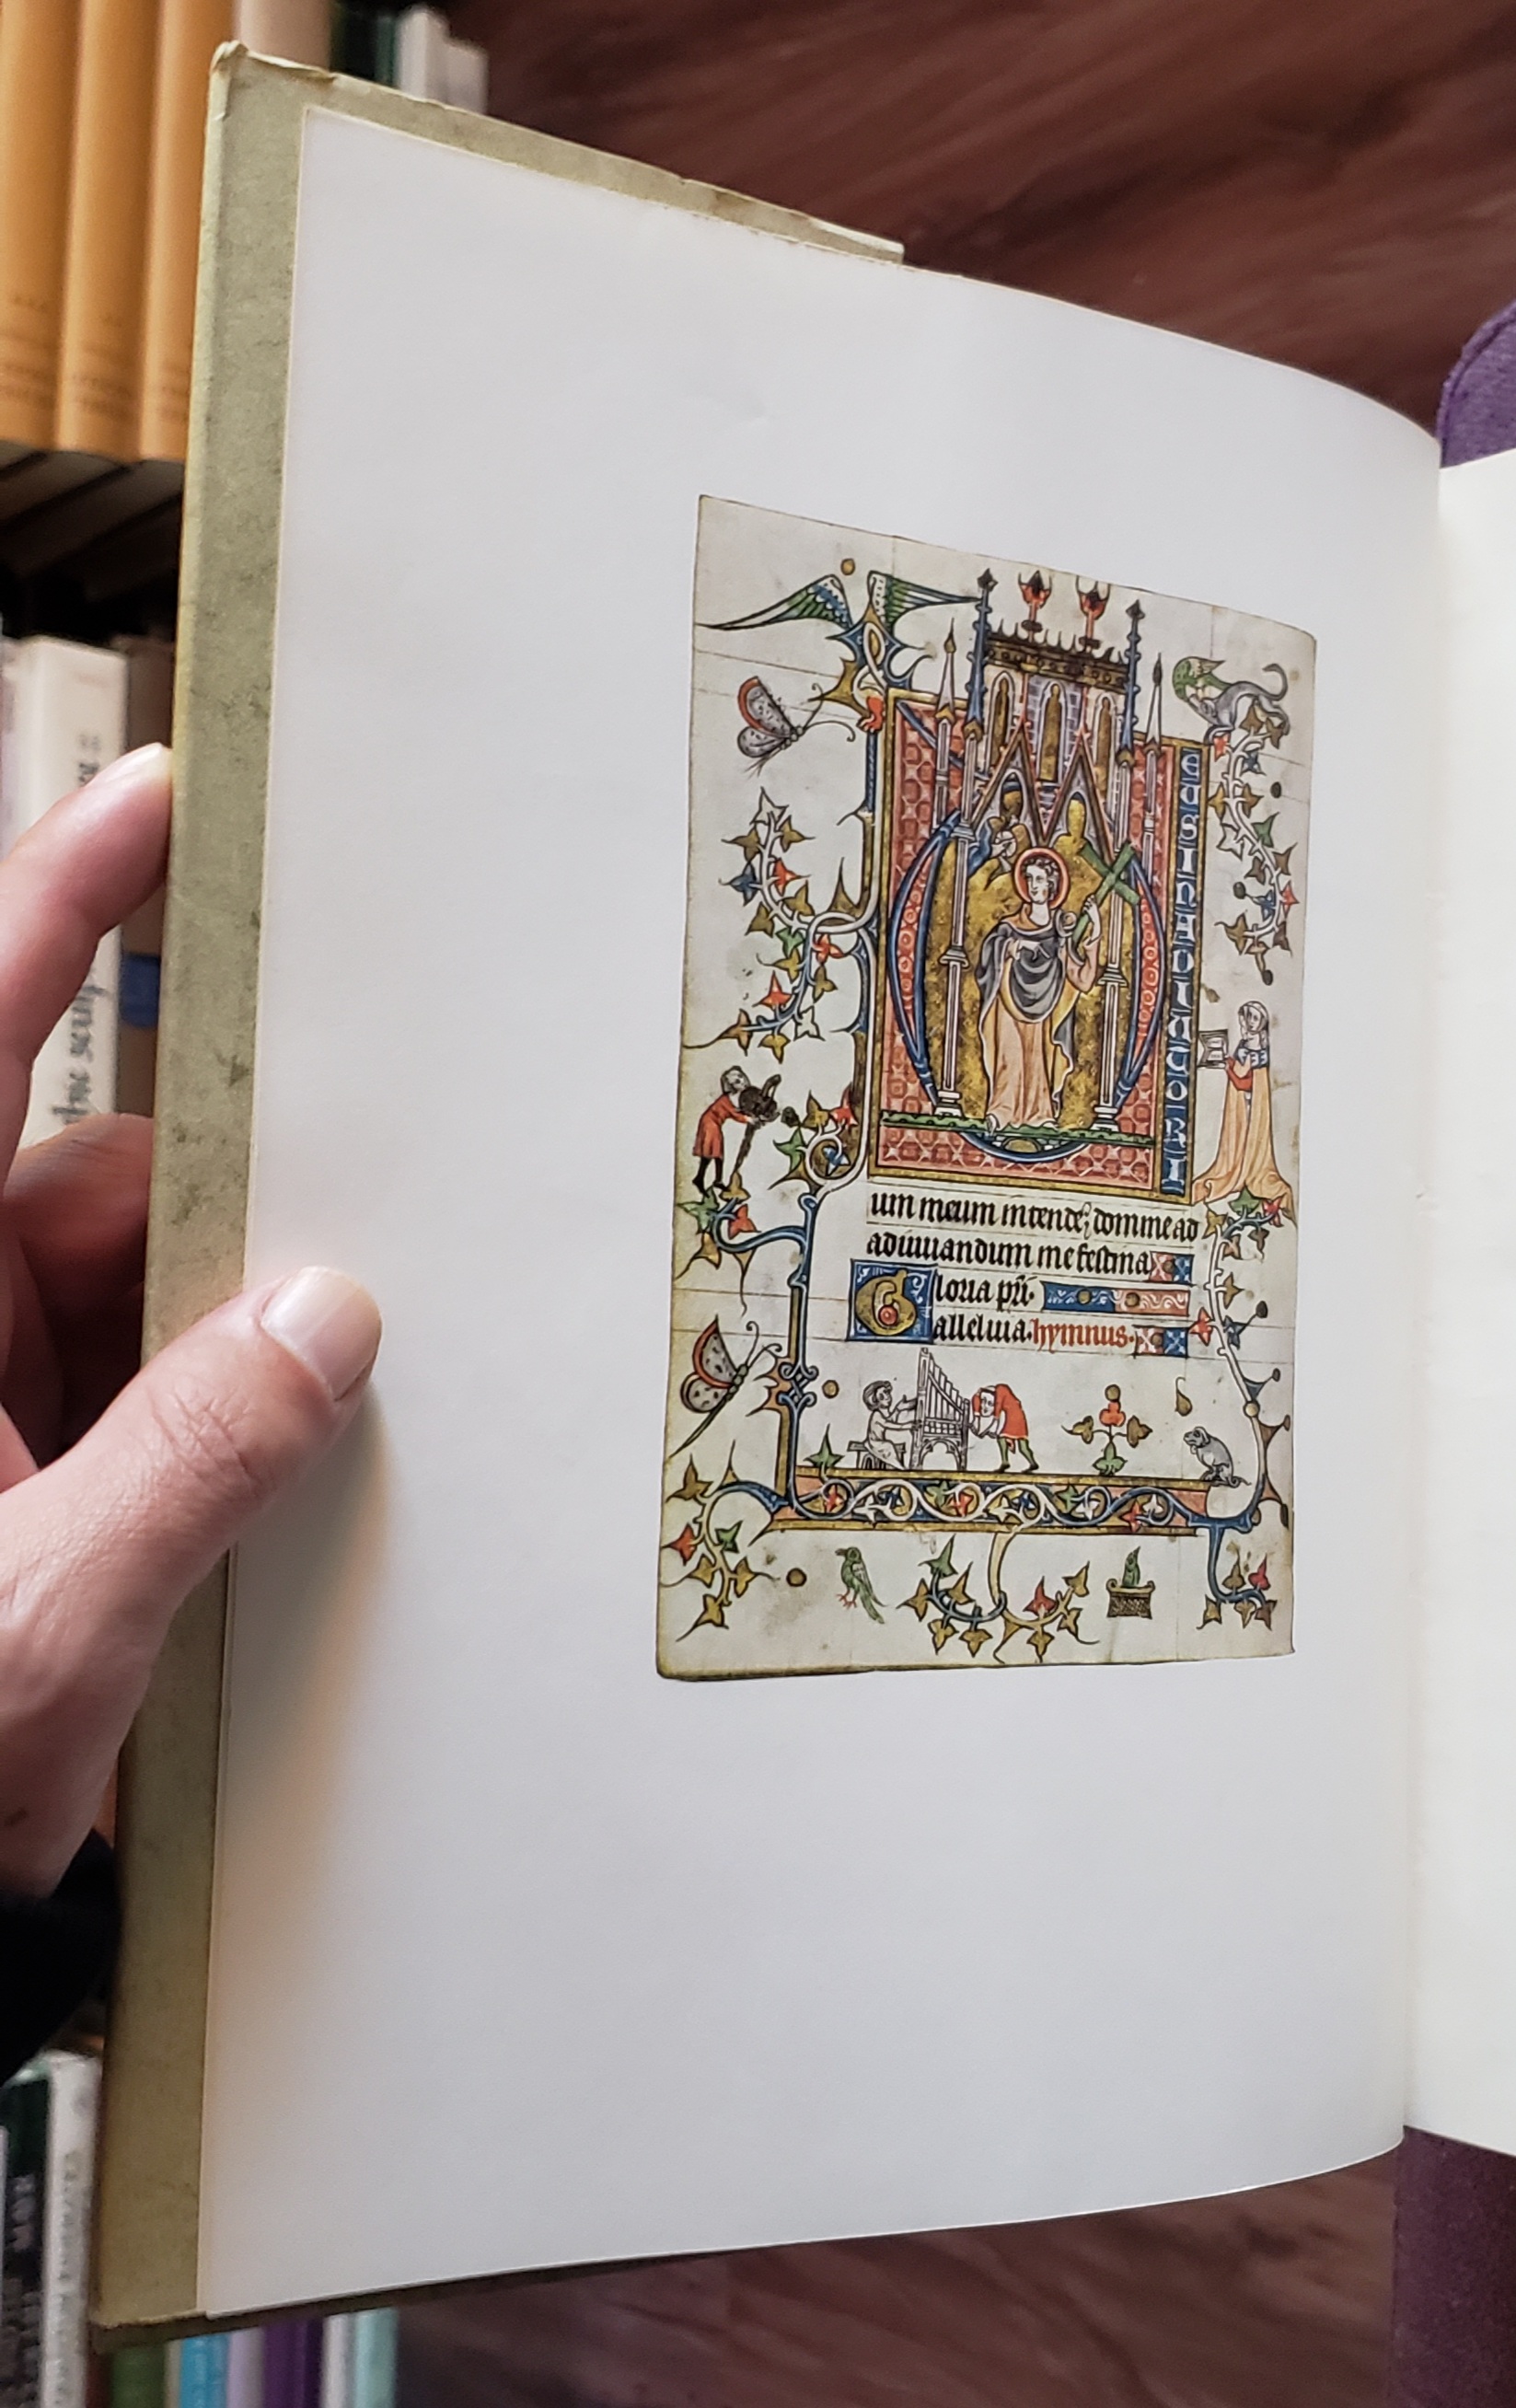 EUSINADIUTORI
um meum intende; domine ad
adiuuandum me festina
Gloria pri.
alleluia. hymnus.